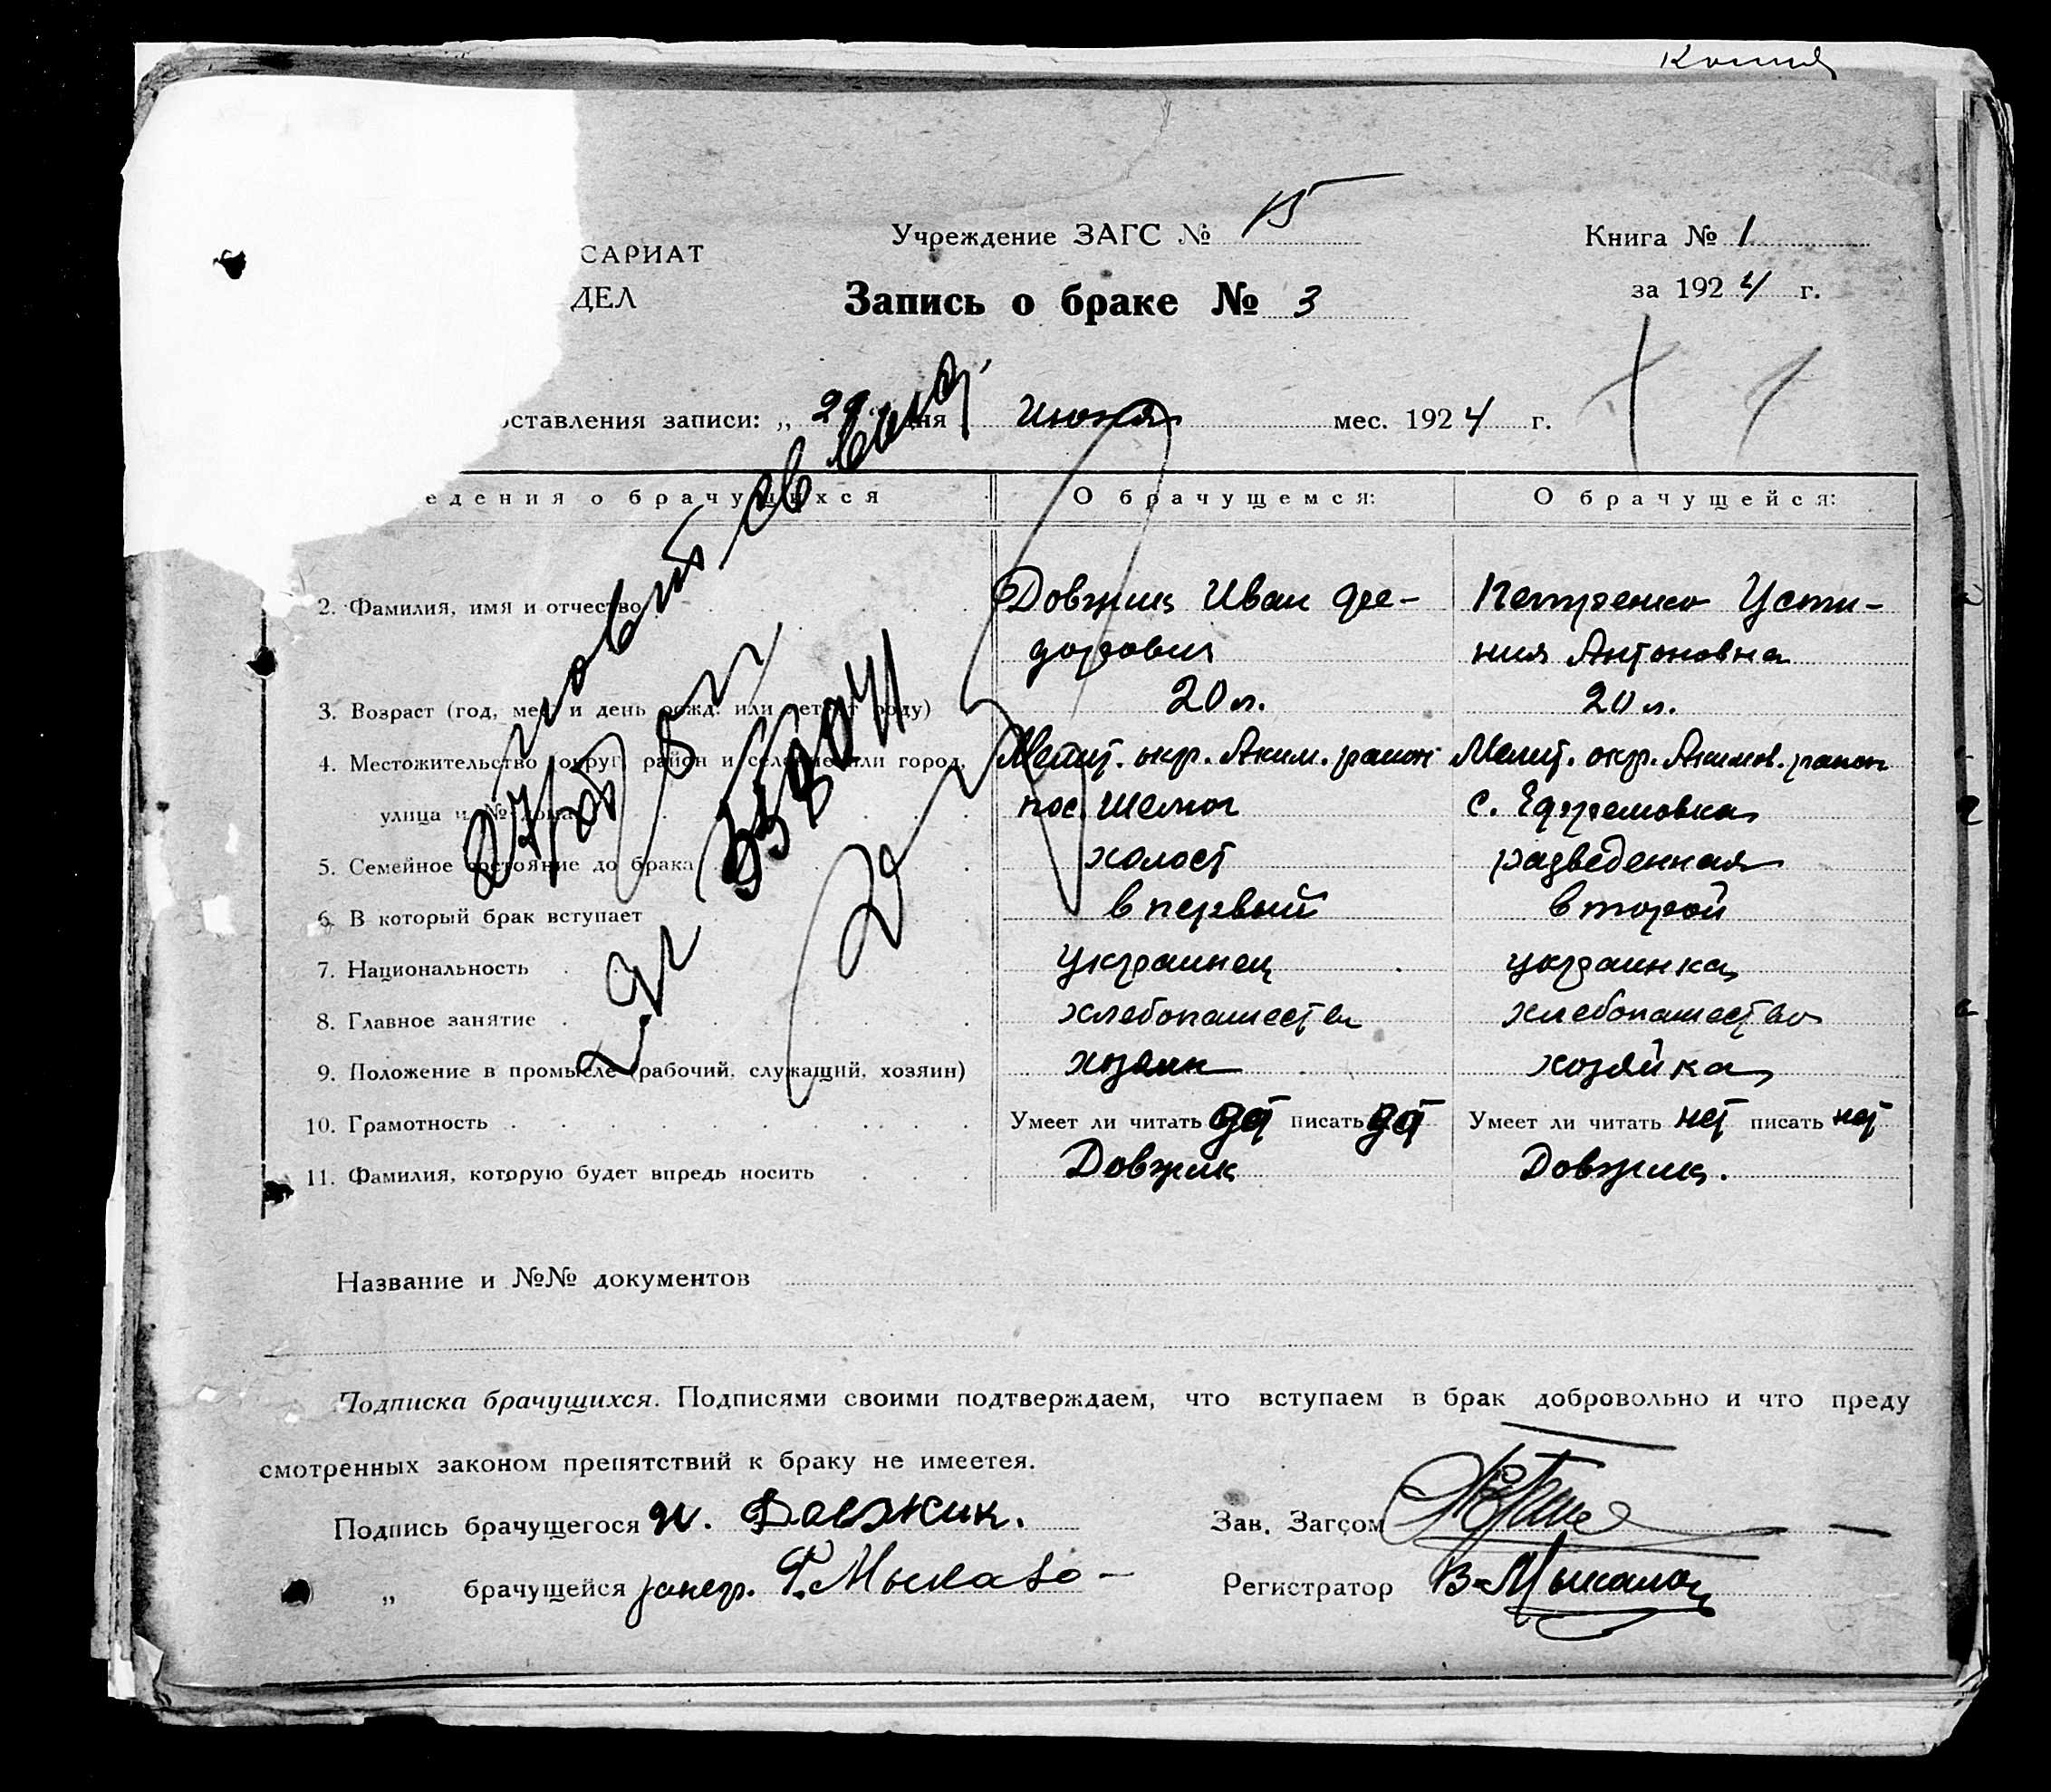 Копия
Учреждение ЗАГС № 15
Книга № 1
САРИАТ
за 1924 г.
ДЕЛ
Запись о браке № 3
оставления записи: „ 29 “ дня Июня мес. 1924 г.
едения о брачущихся О брачущемся: О брачущейся:
2. Фамилия, имя и отчество Довжик Иван Фе- Петренко Усти-
дорович ния Антоновна
3. Возраст (год, мес. и день рожд. или лет от роду) 20 л. 20 л.
4. Местожительство (округ, район и селение или город, Мелит. окр. Аким. район Мелит. окр. Акимов. район
улица и № дома пос. Шелюг с. Ефремовка
5. Семейное состояние до брака холост разведенная
6. В который брак вступает в первый второй
7. Национальность украинец украинка
8. Главное занятие хлебопашество хлебопашество
9. Положение в промысле (рабочий, служащий, хозяин) хозяин хозяйка
10. Грамотность Умеет ли читать да писать да Умеет ли читать нет писать нет
11. Фамилия, которую будет впредь носить Довжик Довжик.
Название и №№ документов
Подписка брачущихся. Подписями своими подтверждаем, что вступаем в брак добровольно и что преду
смотренных законом препятствий к браку не имеется.
Подпись брачущегося И. Довжик. Зав. Загсом
„ брачущейся Регистратор